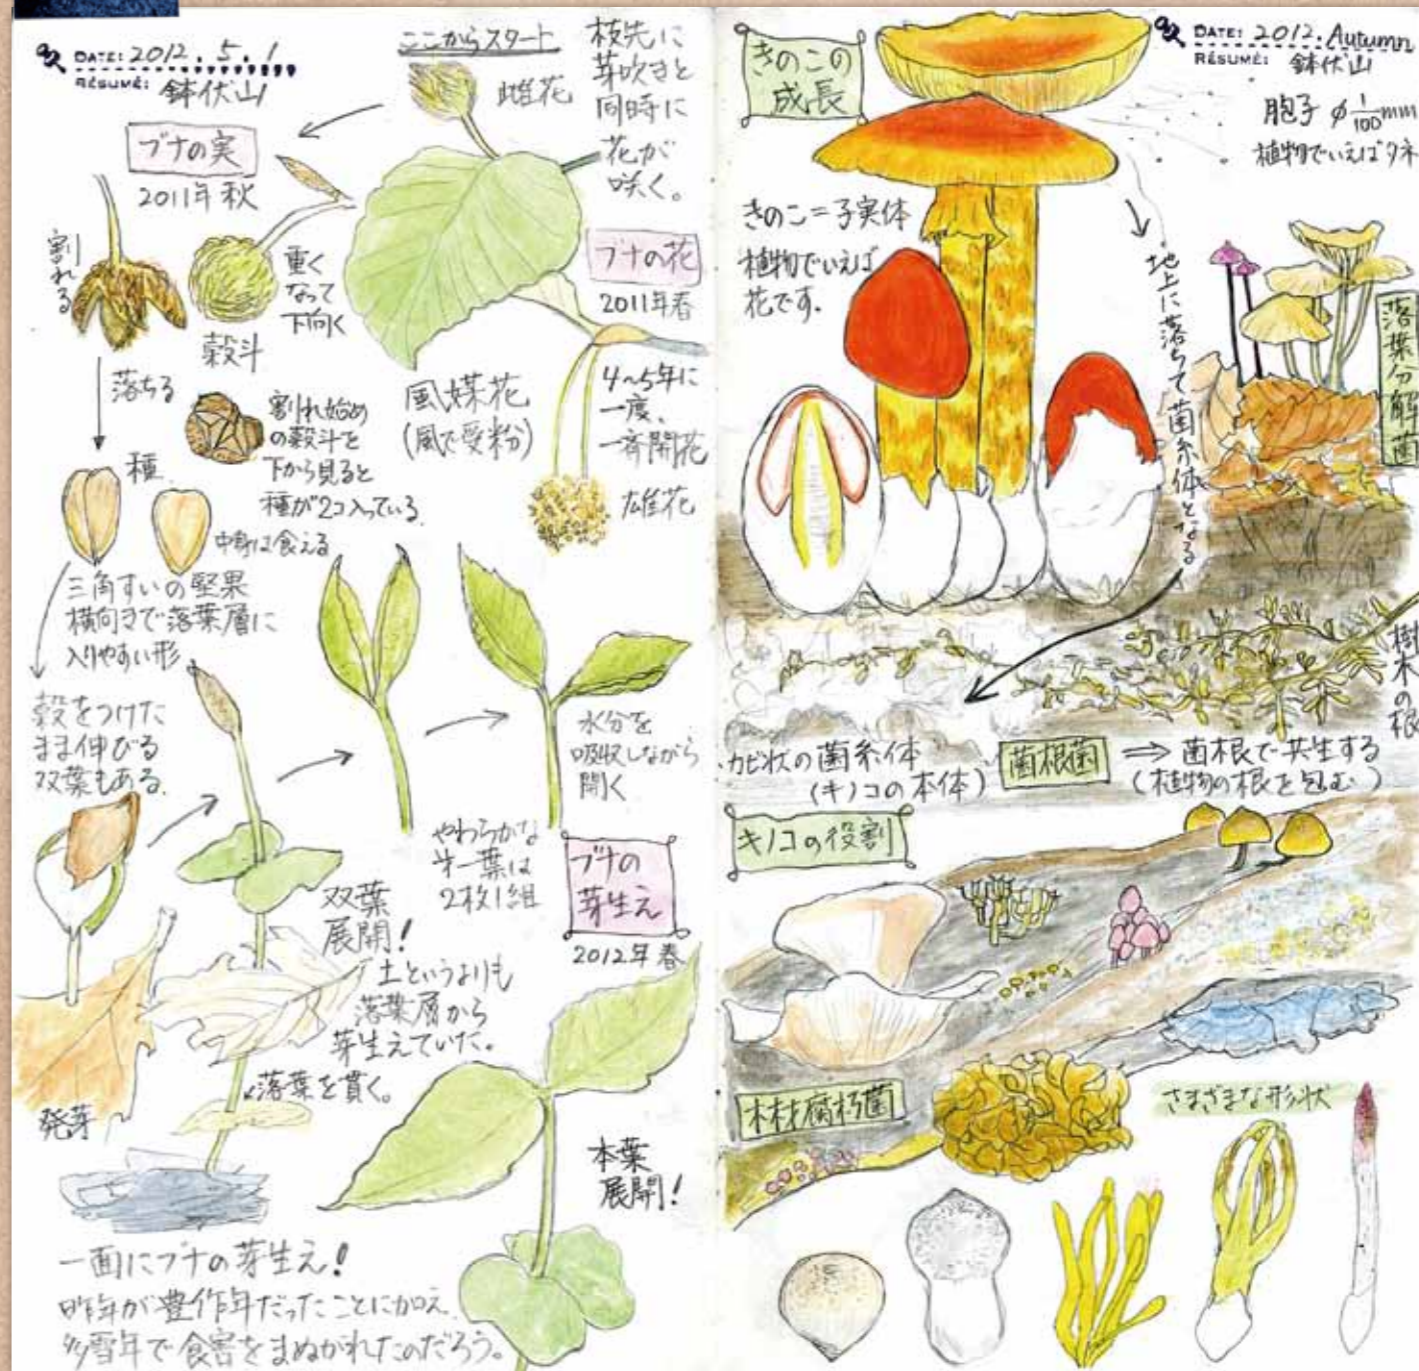 DATE: 2012.5.1
RÉSUMÉ: 鉢伏山
ここからスタート
雌花
枝先に
芽吹きと
同時に
花が
咲く。
ブナの実
2011年秋
割れる
殻斗
重く
なって
下向く
ブナの花
2011年春
風媒花
(風で受粉)
4~5年に
一度、
一斉開花
雄花
落ちる
割れ始め
の殻斗を
下から見ると
種が2コ入っている
種
中身は食える
三角すいの堅果
横向きで落葉層に
入りやすい形
殻をつけた
まま伸びる
双葉もある
水分を
吸収しながら
開く
やわらかな
㐧一葉は
2枚1組
ブナの
芽生え
2012年春
双葉
展開!
土というよりも
落葉層から
芽生えていた。
落葉を貫く。
発芽
本葉
展開!
一面にブナの芽生え!
昨年が豊作年だったことに加え、
多雪年で食害をまぬがれたのだろう。
DATE: 2012.Autumn
RÉSUMÉ: 鉢伏山
きのこの
成長
胞子 φ1/100mm
植物でいえばタネ
きのこ=子実体
植物でいえば
花です.
地上に落ちて菌糸体となる
落葉分解菌
樹木の根
カビ状の菌糸体
(キノコの本体)
菌根菌 ⇒ 菌根で共生する
(植物の根を包む)
キノコの役割
木材腐朽菌
さまざまな形状